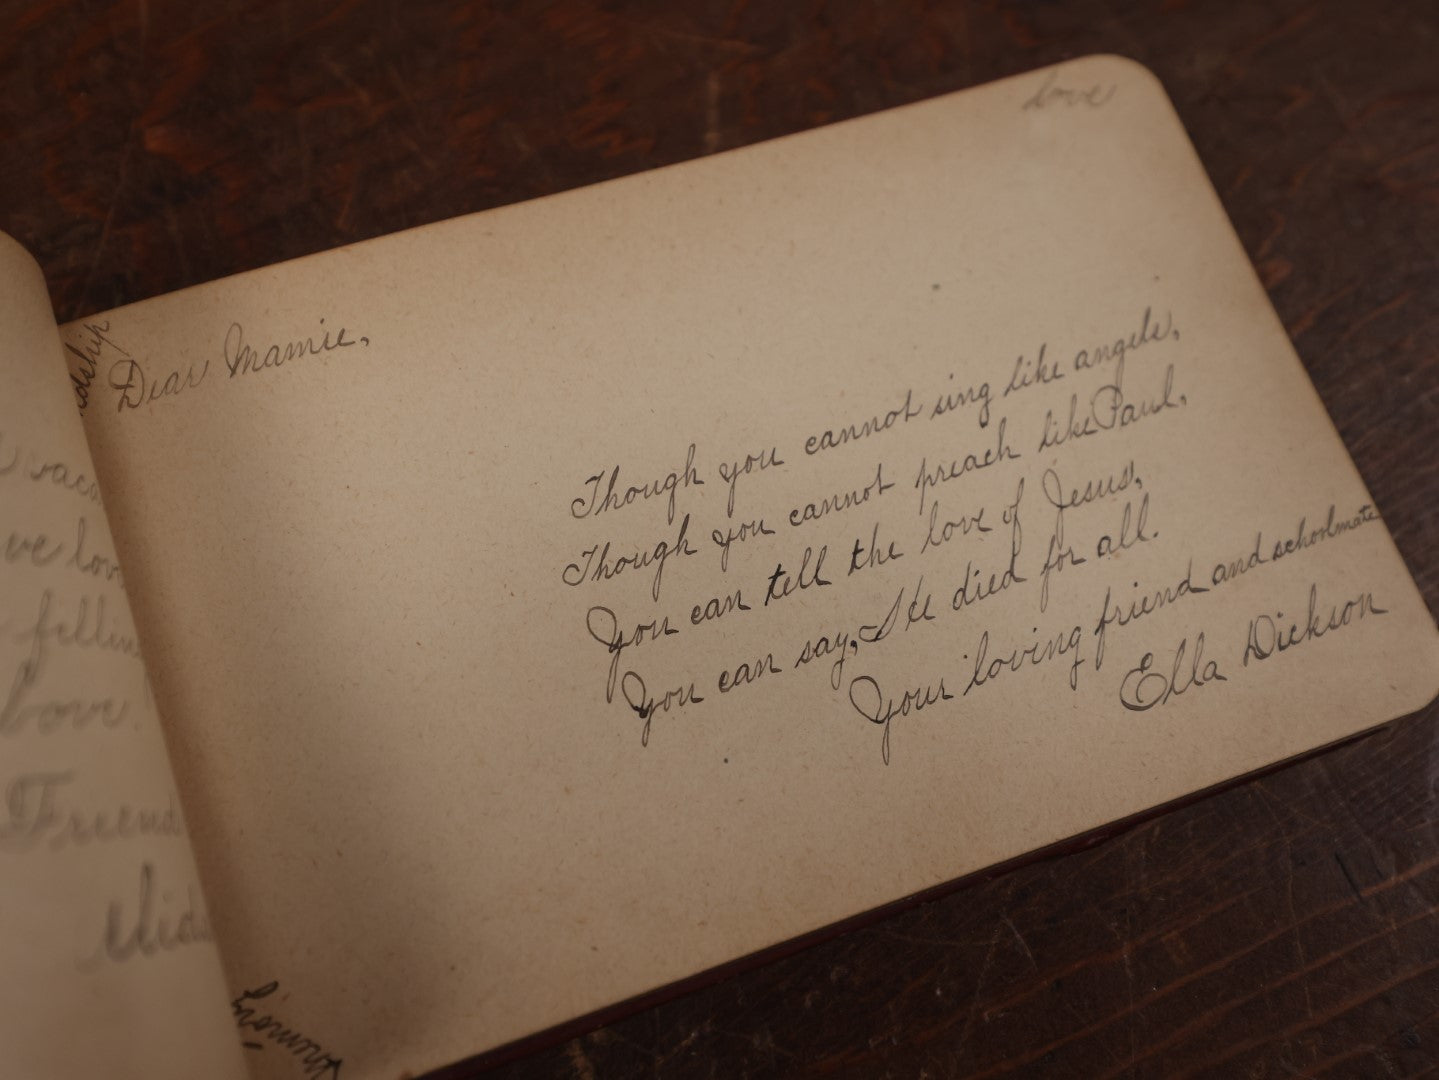 love
Dear Mamie,
Though you cannot sing like angels,
Though you cannot preach like Paul,
You can tell the love of Jesus,
You can say, He died for all.
Your loving friend and schoolmate
Ella Dickson
ndship
ve lov
fillin
love.
Friend